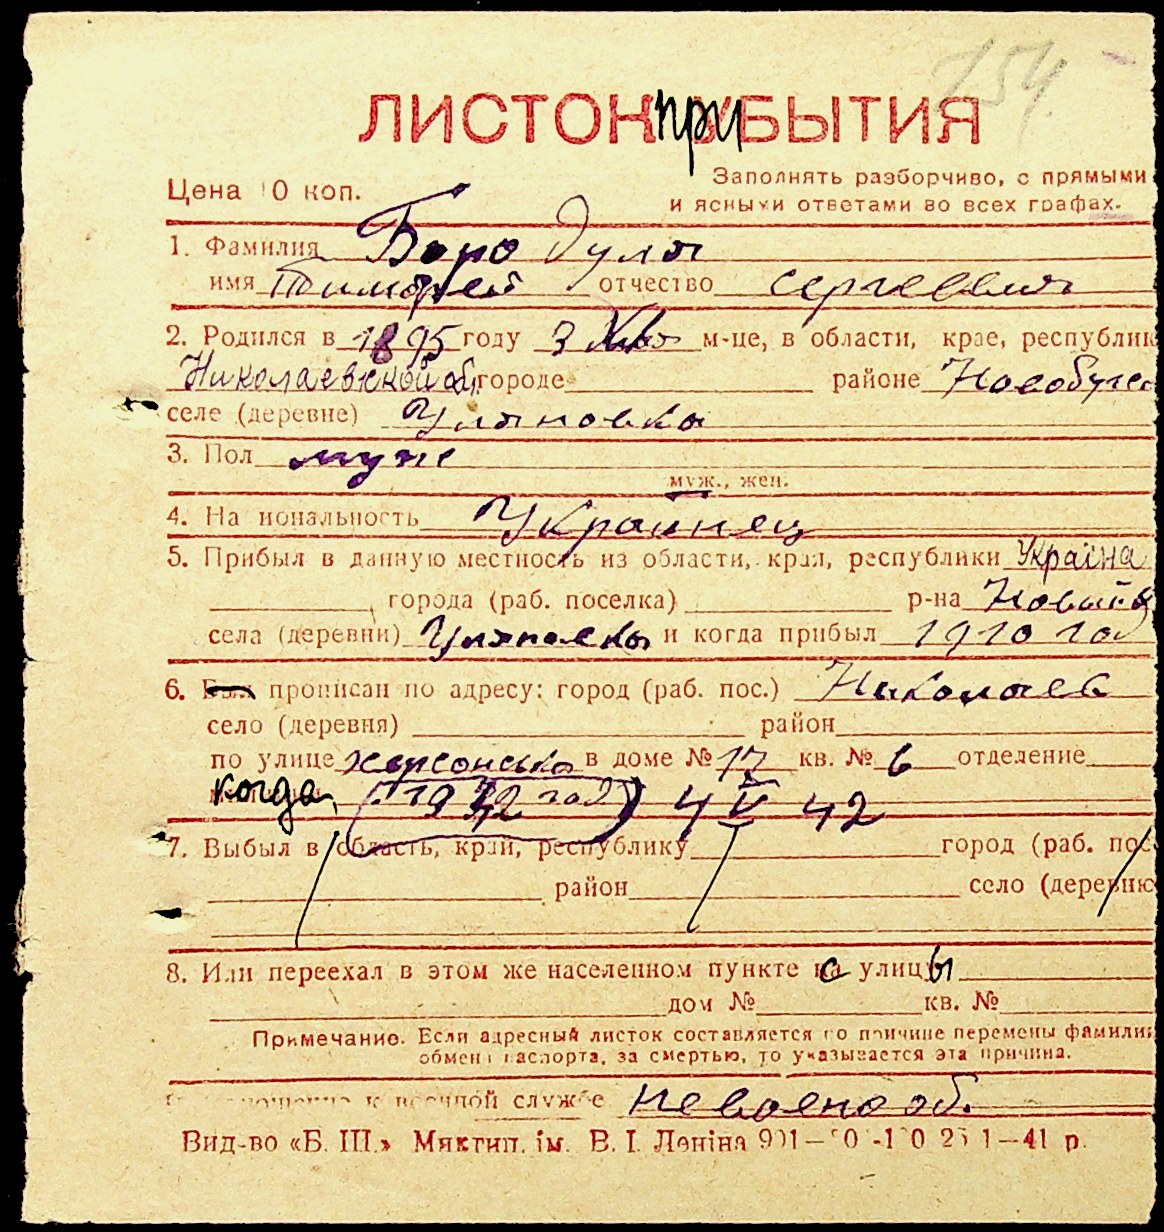 254
ЛИСТОК ПРИБЫТИЯ
Цена 10 коп.
Заполнять разборчиво, с прямыми
и ясными ответами во всех графах.
1. Фамилия Боро дуля
имя Тимофей отчество Сергеевич
2. Родился в 1895 году 3 м-це, в области, крае, республик
Николаевской об. городе районе Новобугс
селе (деревне) Уляновка
3. Пол муж
муж., жен.
4. Национальность Украйнец
5. Прибыл в данную местность из области, края, республики Україна
города (раб. поселка) р-на Новый Б
села (деревни) Уляновки и когда прибыл 1910 год
6. Был прописан по адресу: город (раб. пос.) Николаев
село (деревня) район
по улице херсонська в доме № 17 кв. № 6 отделение
когда (1942 год) 4 V 42
7. Выбыл в область, край, республику город (раб. пос.
район село (деревню
8. Или переехал в этом же населенном пункте с улицы
дом № кв. №
Примечание. Если адресный листок составляется по причине перемены фамилии
обмена паспорта, за смертью, то указывается эта причина.
к военной службе невоенооб.
Вид-во «Б. Ш.» Миктип. ім. В. І. Леніна 1—41 р.